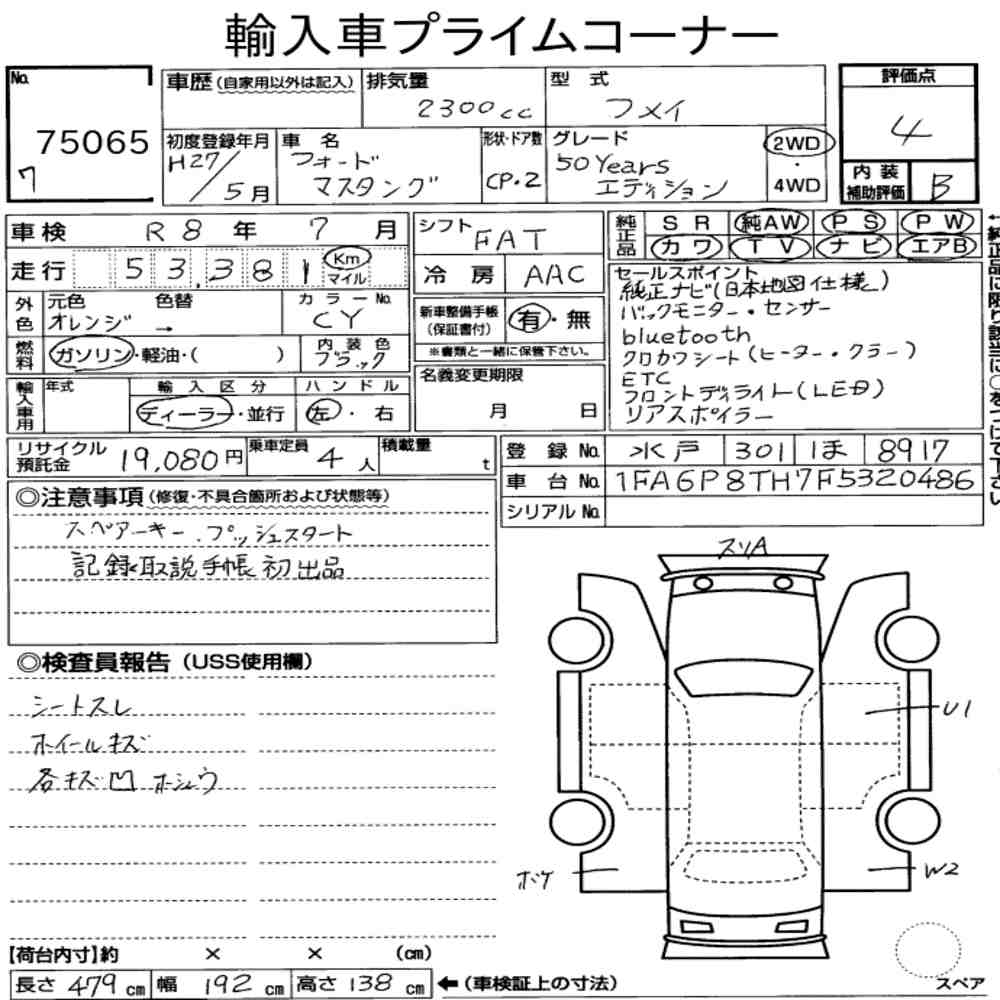 輸入車プライムコーナー
No. 75065
7
車歴(自家用以外は記入) 排気量 2300cc 型式 フメイ
評価点 4
初度登録年月 H27/5月 車名 フォード マスタング 形状・ドア数 CP・2 グレード 50 Years エディション 2WD・4WD
内装補助評価 B
車検 R8年7月
走行 53,381 Km マイル
シフト FAT
冷房 AAC
純正品 SR 純AW PS PW
カワ TV ナビ エアB
←純正品に限り該当に○をつけて下さい
外色 元色 オレンジ 色替 → カラーNo. CY
燃料 ガソリン・軽油・( ) 内装色 ブラック
新車整備手帳(保証書付) 有・無
※書類と一緒に保管下さい。
セールスポイント
純正ナビ(日本地図仕様)
バックモニター・センサー
bluetooth
クロカワシート(ヒーター・クラー)
ETC
フロントディライト(LED)
リアスポイラー
輸入車用 年式 輸入区分 ディーラー・並行 ハンドル 左・右
名義変更期限 月 日
リサイクル預託金 19,080円 乗車定員 4人 積載量 t
登録No. 水戸 301 ほ 8917
車台No. 1FA6P8TH7F5320486
シリアルNo.
◎注意事項(修復・不具合箇所および状態等)
スペアーキー.プッシュスタート
記録 取説 手帳 初出品
◎検査員報告(USS使用欄)
シートスレ
ホイールキズ
各キズ凹 ホシュウ
スリA
U1
ボケ
W2
スペア
【荷台内寸】約 × × (cm)
長さ 479cm 幅 192cm 高さ 138cm ←(車検証上の寸法)